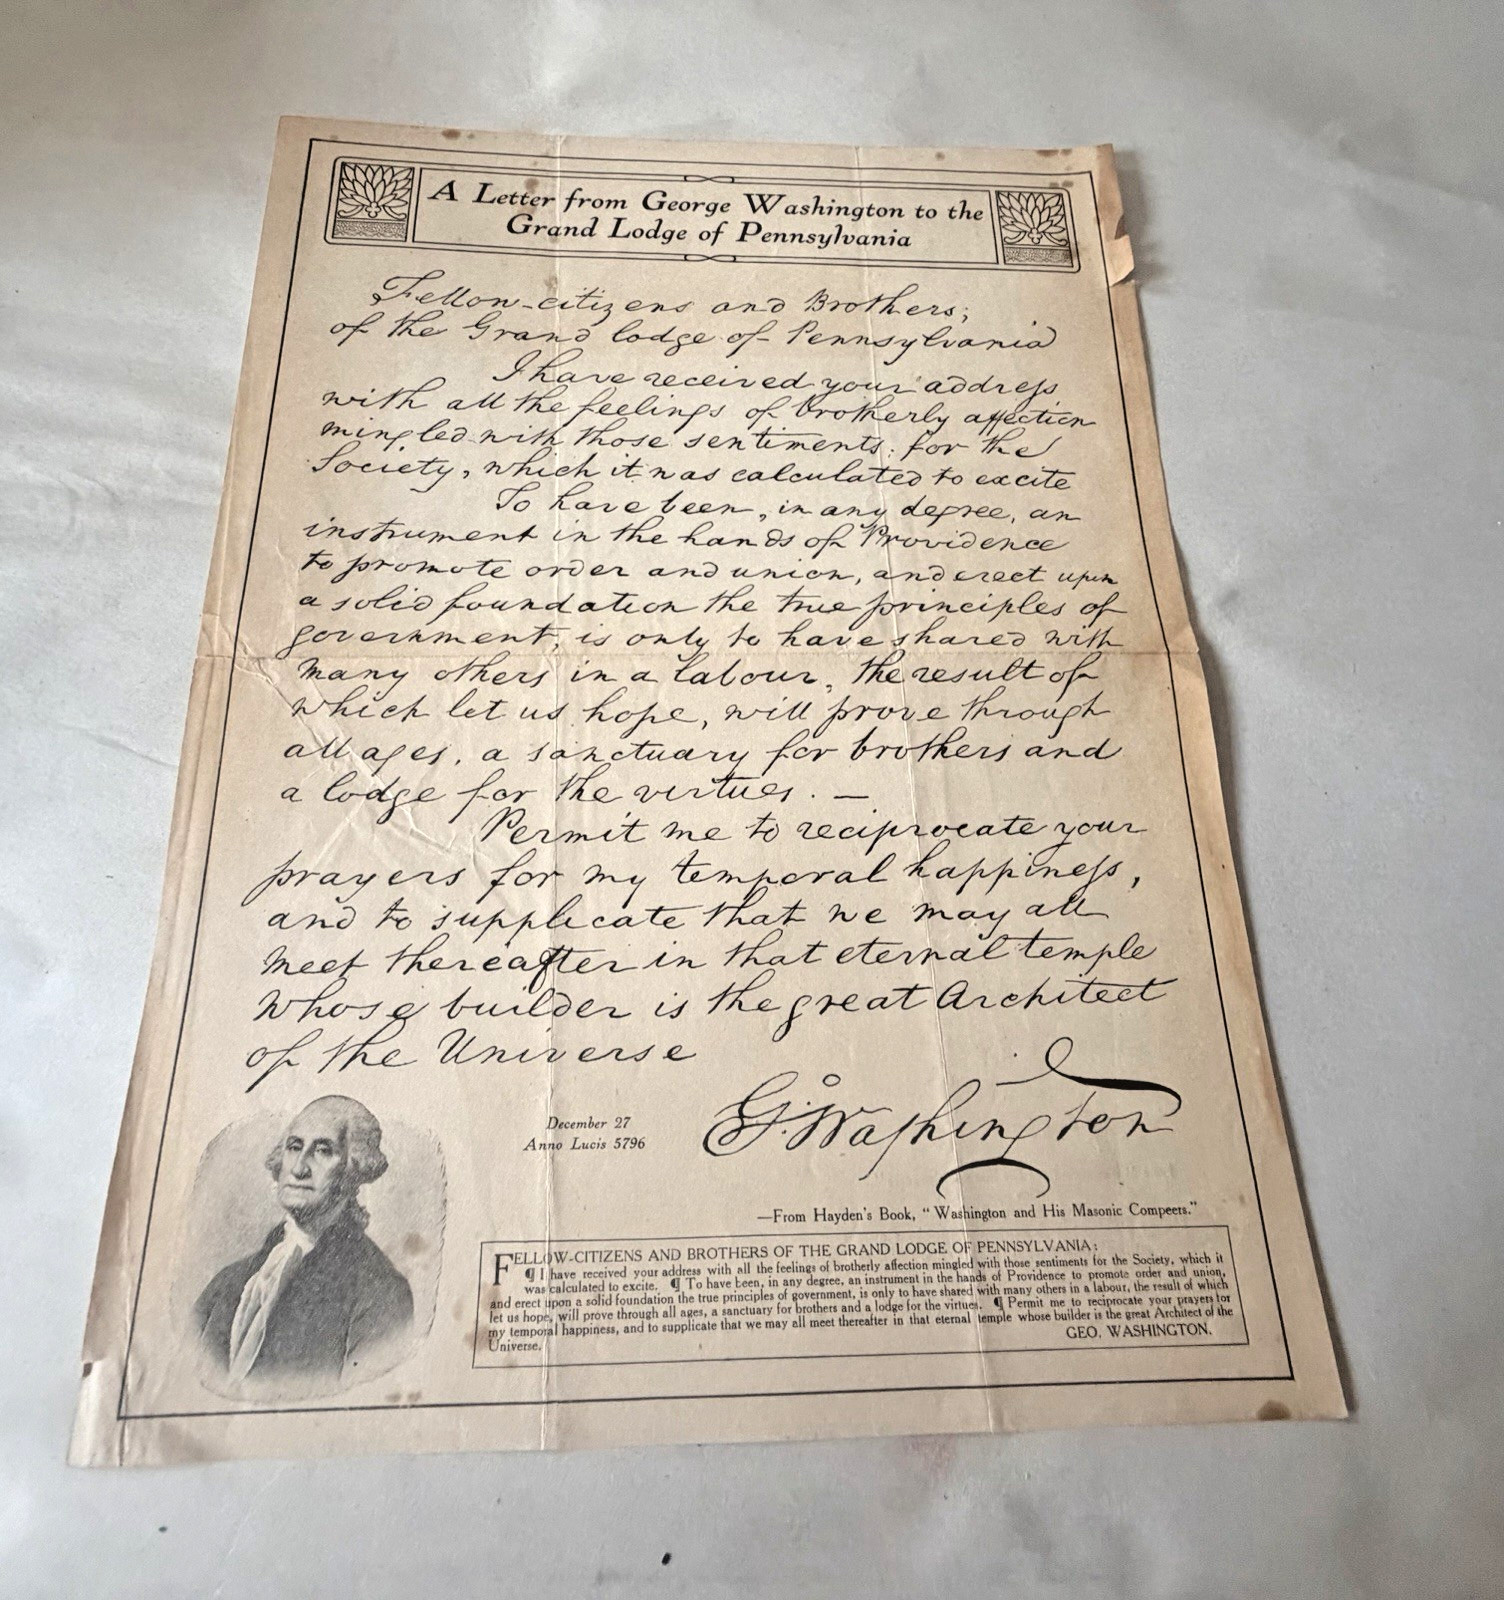 A Letter from George Washington to the
Grand Lodge of Pennsylvania
Fellow-citizens and Brothers;
of the Grand lodge of Pennsylvania
I have received your address
with all the feelings of brotherly affection
mingled with those sentiments, for the
Society, which it was calculated to excite
To have been, in any degree, an
instrument in the hands of Providence
to promote order and union, and erect upon
a solid foundation the true principles of
government, is only to have shared with
many others in a labour, the result of
which let us hope, will prove through
all ages, a sanctuary for brothers and
a lodge for the virtues. —
Permit me to reciprocate your
prayers for my temporal happiness,
and to supplicate that we may all
meet thereafter in that eternal temple
whose builder is the great Architect
of the Universe
December 27
Anno Lucis 5796
Go. Washington
—From Hayden's Book, "Washington and His Masonic Compeers."
FELLOW-CITIZENS AND BROTHERS OF THE GRAND LODGE OF PENNSYLVANIA:
¶ I have received your address with all the feelings of brotherly affection mingled with those sentiments for the Society, which it
was calculated to excite. ¶ To have been, in any degree, an instrument in the hands of Providence to promote order and union,
and erect upon a solid foundation the true principles of government, is only to have shared with many others in a labour, the result of which
let us hope, will prove through all ages, a sanctuary for brothers and a lodge for the virtues. ¶ Permit me to reciprocate your prayers for
my temporal happiness, and to supplicate that we may all meet thereafter in that eternal temple whose builder is the great Architect of the
Universe.
GEO. WASHINGTON.